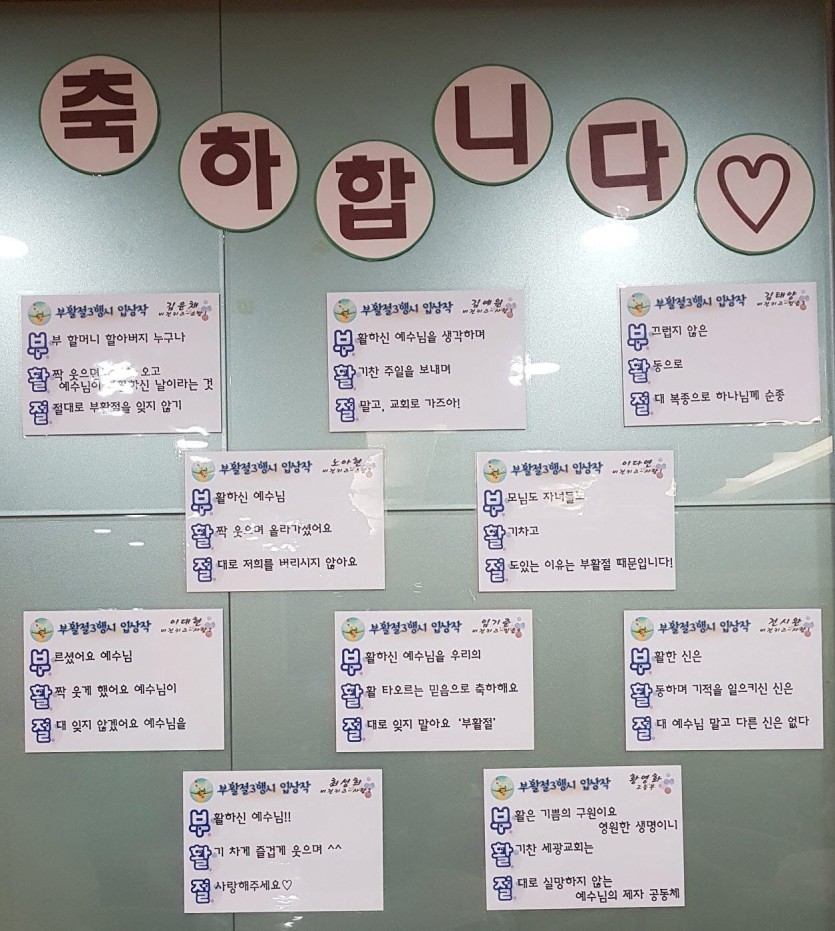 축하합니다♡
부활절3행시 입상작 김윤채
부 부 할머니 할아버지 누구나
활 짝 웃으며 오고
예수님이 부활하신 날이라는 것
절 절대로 부활절을 잊지 않기
부활절3행시 입상작 김예원
부 활하신 예수님을 생각하며
활 기찬 주일을 보내며
절 말고, 교회로 가즈아!
부활절3행시 입상작 김태양
부 끄럽지 않은
활 동으로
절 대 복종으로 하나님께 순종
부활절3행시 입상작 노아현
부 활하신 예수님
활 짝 웃으며 올라가셨어요
절 대로 저희를 버리시지 않아요
부활절3행시 입상작 이다연
부 모님도 자녀들도
활 기차고
절 도있는 이유는 부활절 때문입니다!
부활절3행시 입상작 이대현
부 르셨어요 예수님
활 짝 웃게 했어요 예수님이
절 대 잊지 않겠어요 예수님을
부활절3행시 입상작
부 활하신 예수님을 우리의
활 활 타오르는 믿음으로 축하해요
절 대로 잊지 말아요 '부활절'
부활절3행시 입상작
부 활한 신은
활 동하며 기적을 일으키신 신은
절 대 예수님 말고 다른 신은 없다
부활절3행시 입상작 최성희
부 활하신 예수님!!
활 기 차게 즐겁게 웃으며 ^^
절 사랑해주세요♡
부활절3행시 입상작 황영화
고등부
부 활은 기쁨의 구원이요
영원한 생명이니
활 기찬 세광교회는
절 대로 실망하지 않는
예수님의 제자 공동체